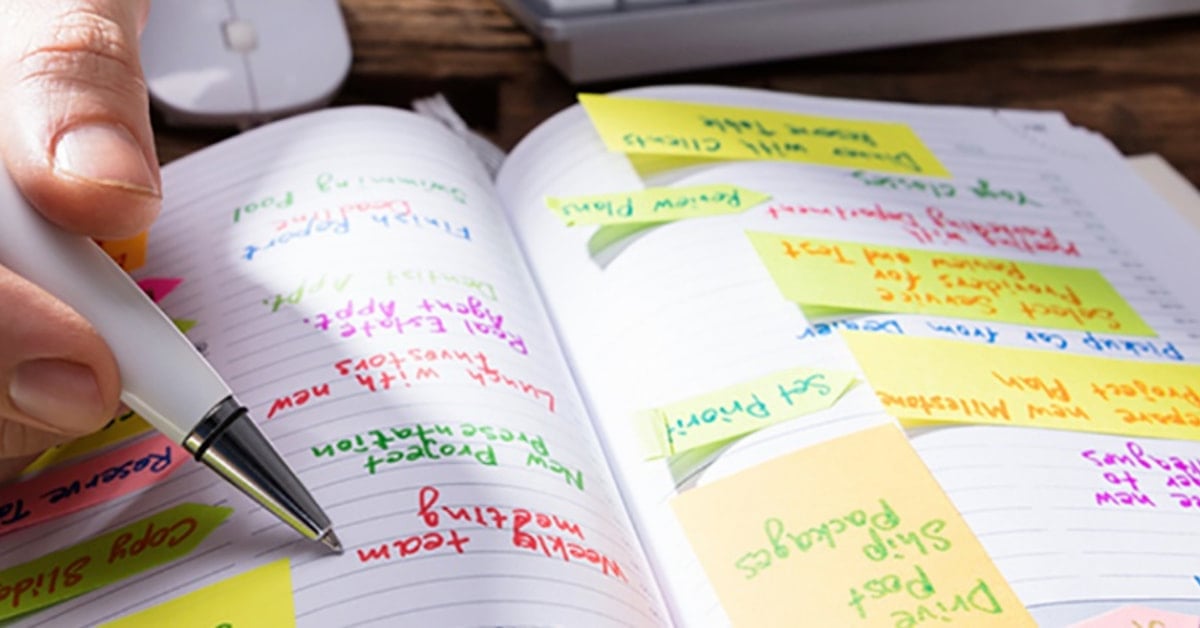 Drive
Post
Ship
Packages
new
to
new Milestone
Project Plan
Set Priorit
Pickup Car from Dealer
Select Service
Providers for
Review and Test
Meeting with
Department
Review Plans
Yoga Classes
Dinner with Clients
Reserve Table
Weekly team
meeting
New Project
Presentation
Lunch with new
Investors
Real Estate
Agent Appt.
Dentist Appt.
Finish Report
Deadline
Swimming
Pool
Copy
Reserve